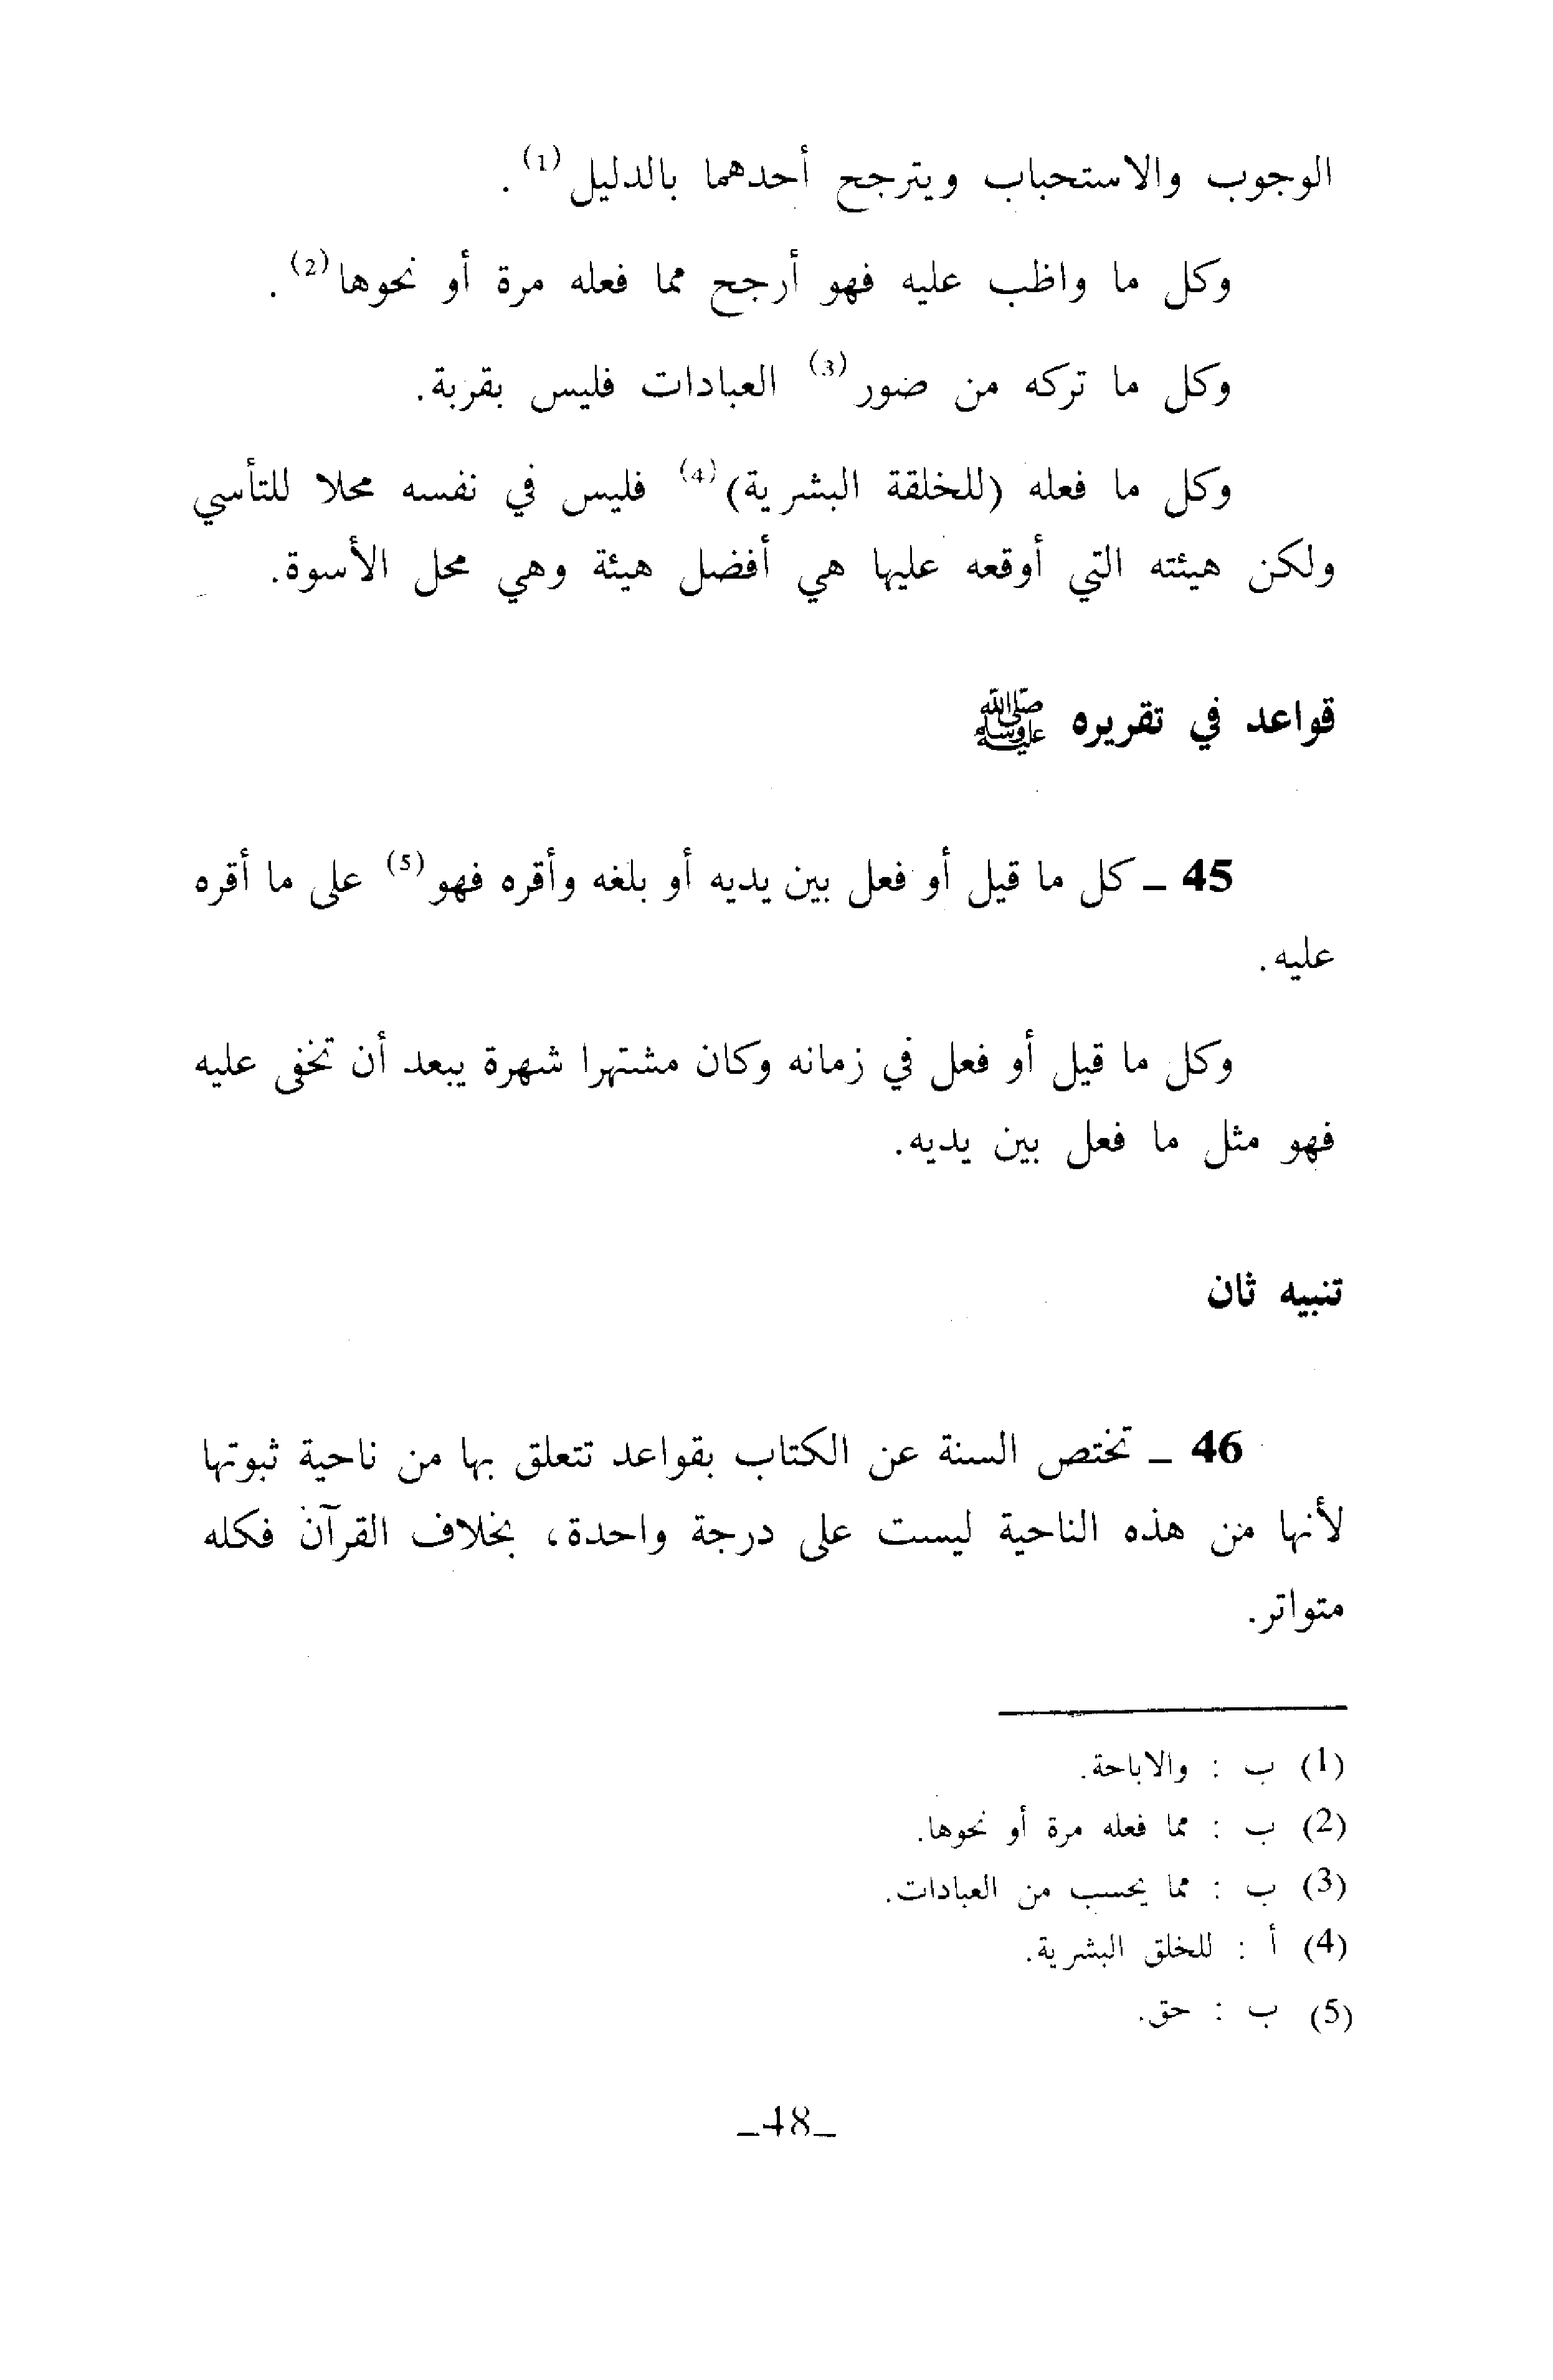 الوجوب والاستحباب ويترجح أحدهما بالدليل(1).
وكل ما واظب عليه فهو أرجح مما فعله مرة أو نحوها(2).
وكل ما تركه من ضور(3) العبادات فليس بقربة.
وكل ما فعله (للخلقة البشرية)(4) فليس في نفسه محلا للتأسي
ولكن هيئته التي أوقعه عليها هي أفضل هيئة وهي محل الأسوة.
قواعد في تقريره ﷺ
45 ـ كل ما قيل أو فعل بين يديه أو بلغه وأقره فهو(5) على ما أقره
عليه.
وكل ما قيل أو فعل في زمانه وكان مشتهرا شهرة يبعد أن تخفى عليه
فهو مثل ما فعل بين يديه.
تنبيه ثان
46 ـ تختص السنة عن الكتاب بقواعد تتعلق بها من ناحية ثبوتها
لأنها من هذه الناحية ليست على درجة واحدة، بخلاف القرآن فكله
متواتر.
(1) ب : والاباحة.
(2) ب : مما فعله مرة أو نحوها.
(3) ب : مما يحسب من العبادات.
(4) أ : للخلق البشرية.
(5) ب : حق.
ـ48ـ